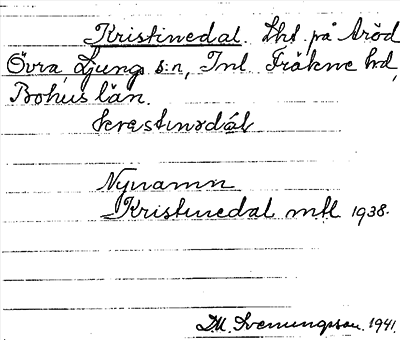 Kristinedal. Lht på Aröd
Övra, Ljungs s:n, Inl. Fräkne hd,
Bohus län.
krestinədál
Nynamn
Kristinedal mtl 1938.
D.M. Svenungsson. 1941.